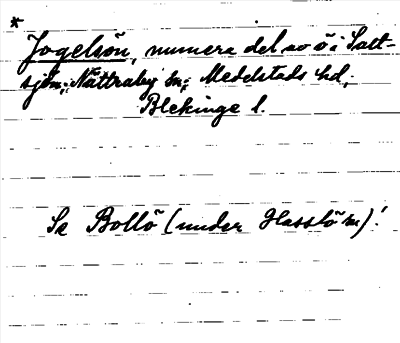 *
Jogelsön, numera del av ö i Salt-
sjön; Nättraby sn; Medelstads hd,
Blekinge l.
Se Bollö (under Hasslö sn)!